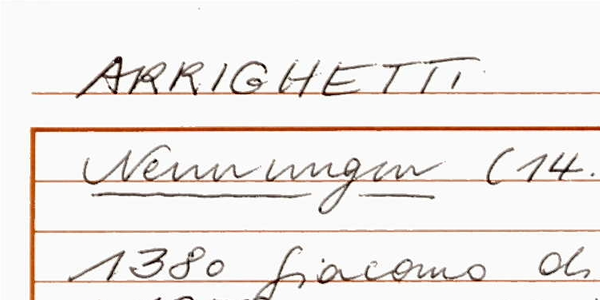 ARRIGHETTI
Nennungen (14.
1380 Giacomo di